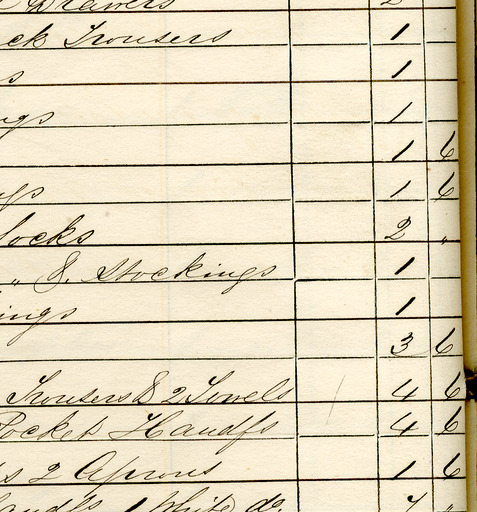 Drawers 2
ck Trousers 1
s 1
ngs 1
1 6
gs 1 6
Socks 2 "
" & Stockings 1
ings 1
3 6
Trousers & 2 Towels 4 6
Pocket Handfs 4 6
s 2 Aprons 1 6
andfs 1 White do. 7 "